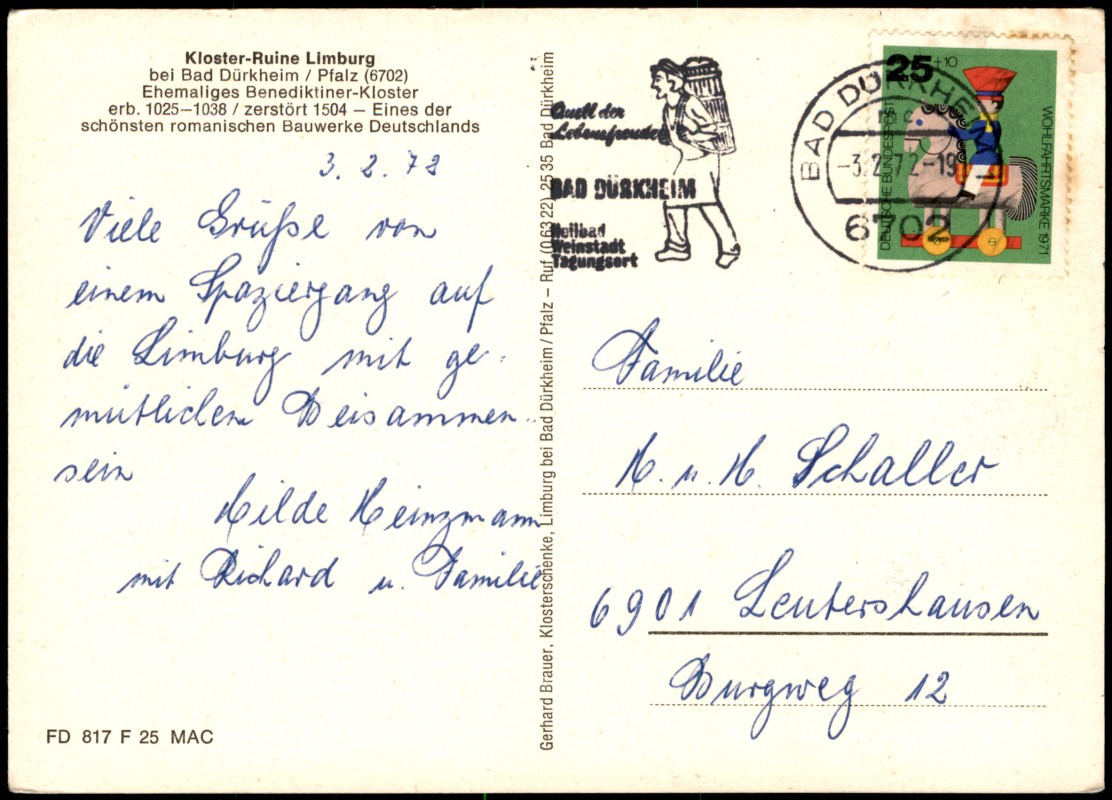 Kloster-Ruine Limburg
bei Bad Dürkheim / Pfalz (6702)
Ehemaliges Benediktiner-Kloster
erb. 1025–1038 / zerstört 1504 – Eines der
schönsten romanischen Bauwerke Deutschlands
3. 2. 72
Viele Grüße von
einem Spaziergang auf
die Limburg mit ge-
mütlichem Beisammen-
sein
Hilde Heinzmann
mit Richard u. Familie
FD 817 F 25 MAC
Gerhard Brauer, Klosterschenke, Limburg bei Bad Dürkheim / Pfalz – Ruf (0 63 22) 25 35 Bad Dürkheim
Quell der
Lebensfreude
BAD DÜRKHEIM
Heilbad
Weinstadt
Tagungsort
BAD DÜRKHEIM
-3.2.72-19
6702
25+10
DEUTSCHE BUNDESPOST
WOHLFAHRTSMARKE 1971
Familie
H. u. H. Schaller
6901 Leutershausen
Burgweg 12